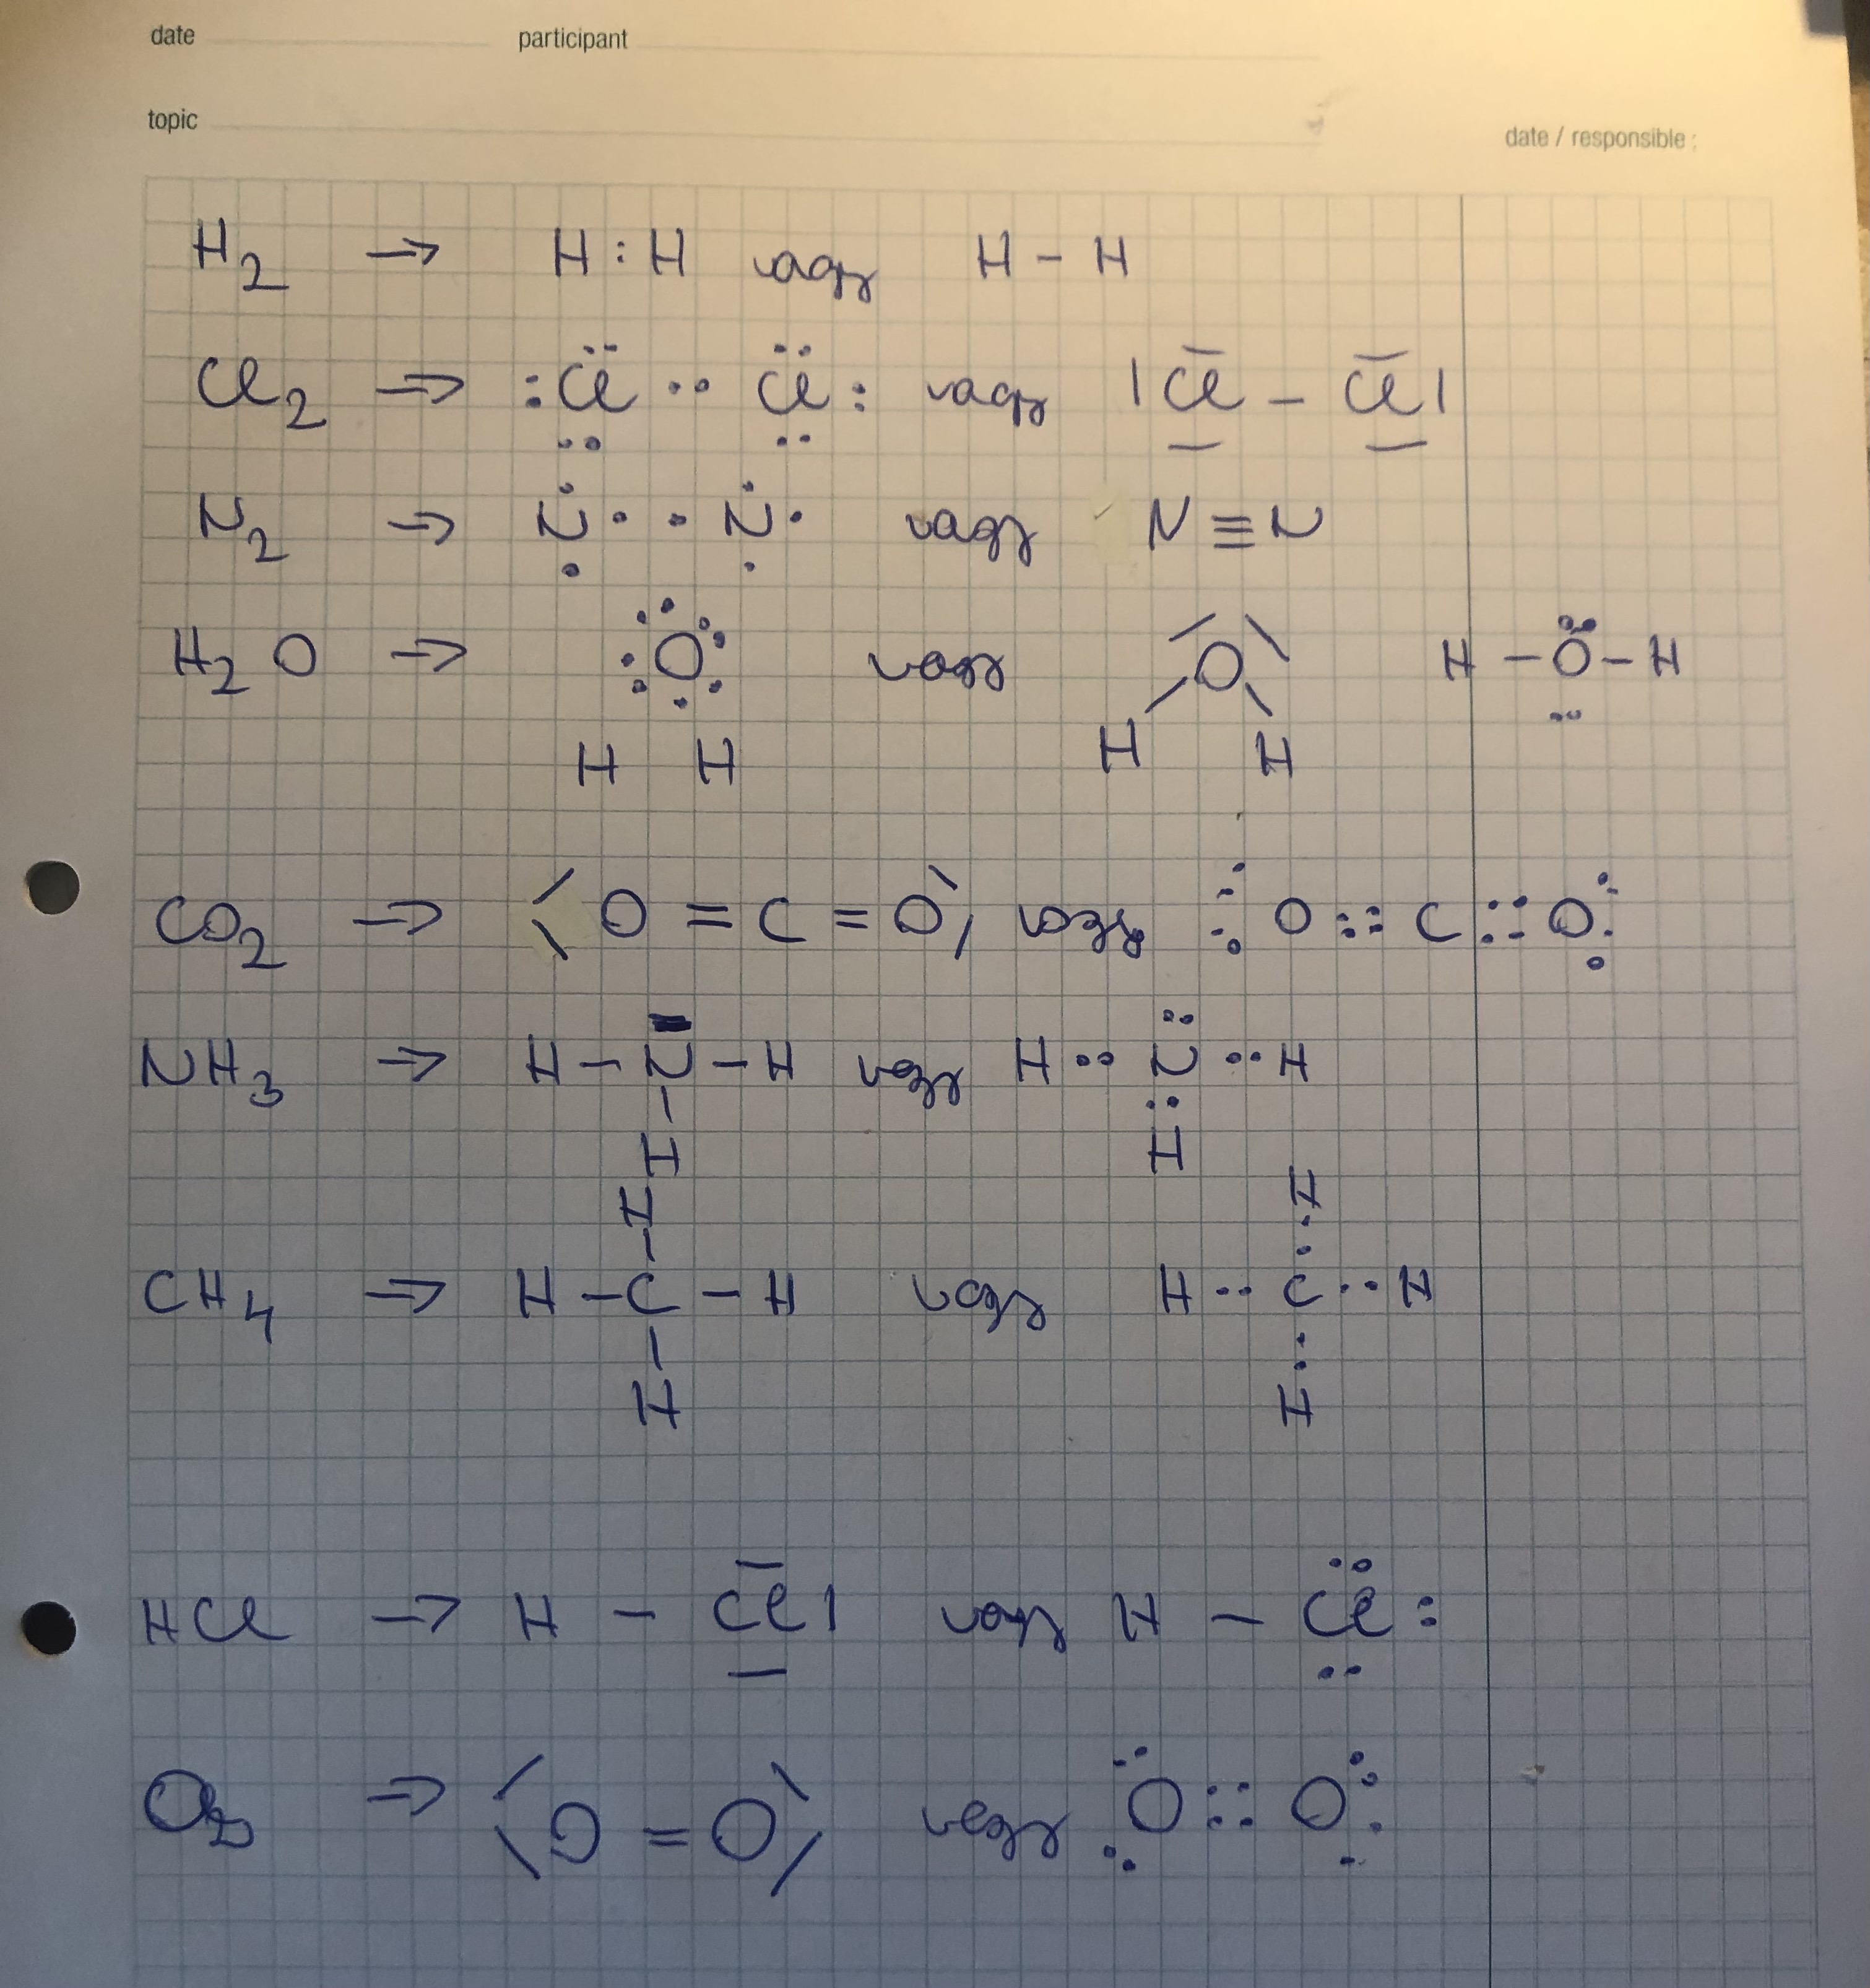 date participant
topic
date / responsible :
H2 → H : H vagy H – H
Cl2 → :C̈l ·· C̈l: vagy |C̅l – C̅l|
N2 → Ṅ · · Ṅ · vagy N ≡ N
H2O → O vagy O H – Ö – H
H H H H
CO2 → O = C = O, vagy O :: C :: O
NH3 → H – N – H vagy H ·· N̈ ·· H
H H
H H
CH4 → H – C – H vagy H ·· C ·· H
H H
HCl → H – C̅l| vagy H – C̈l:
O2 → O = O vagy O :: O